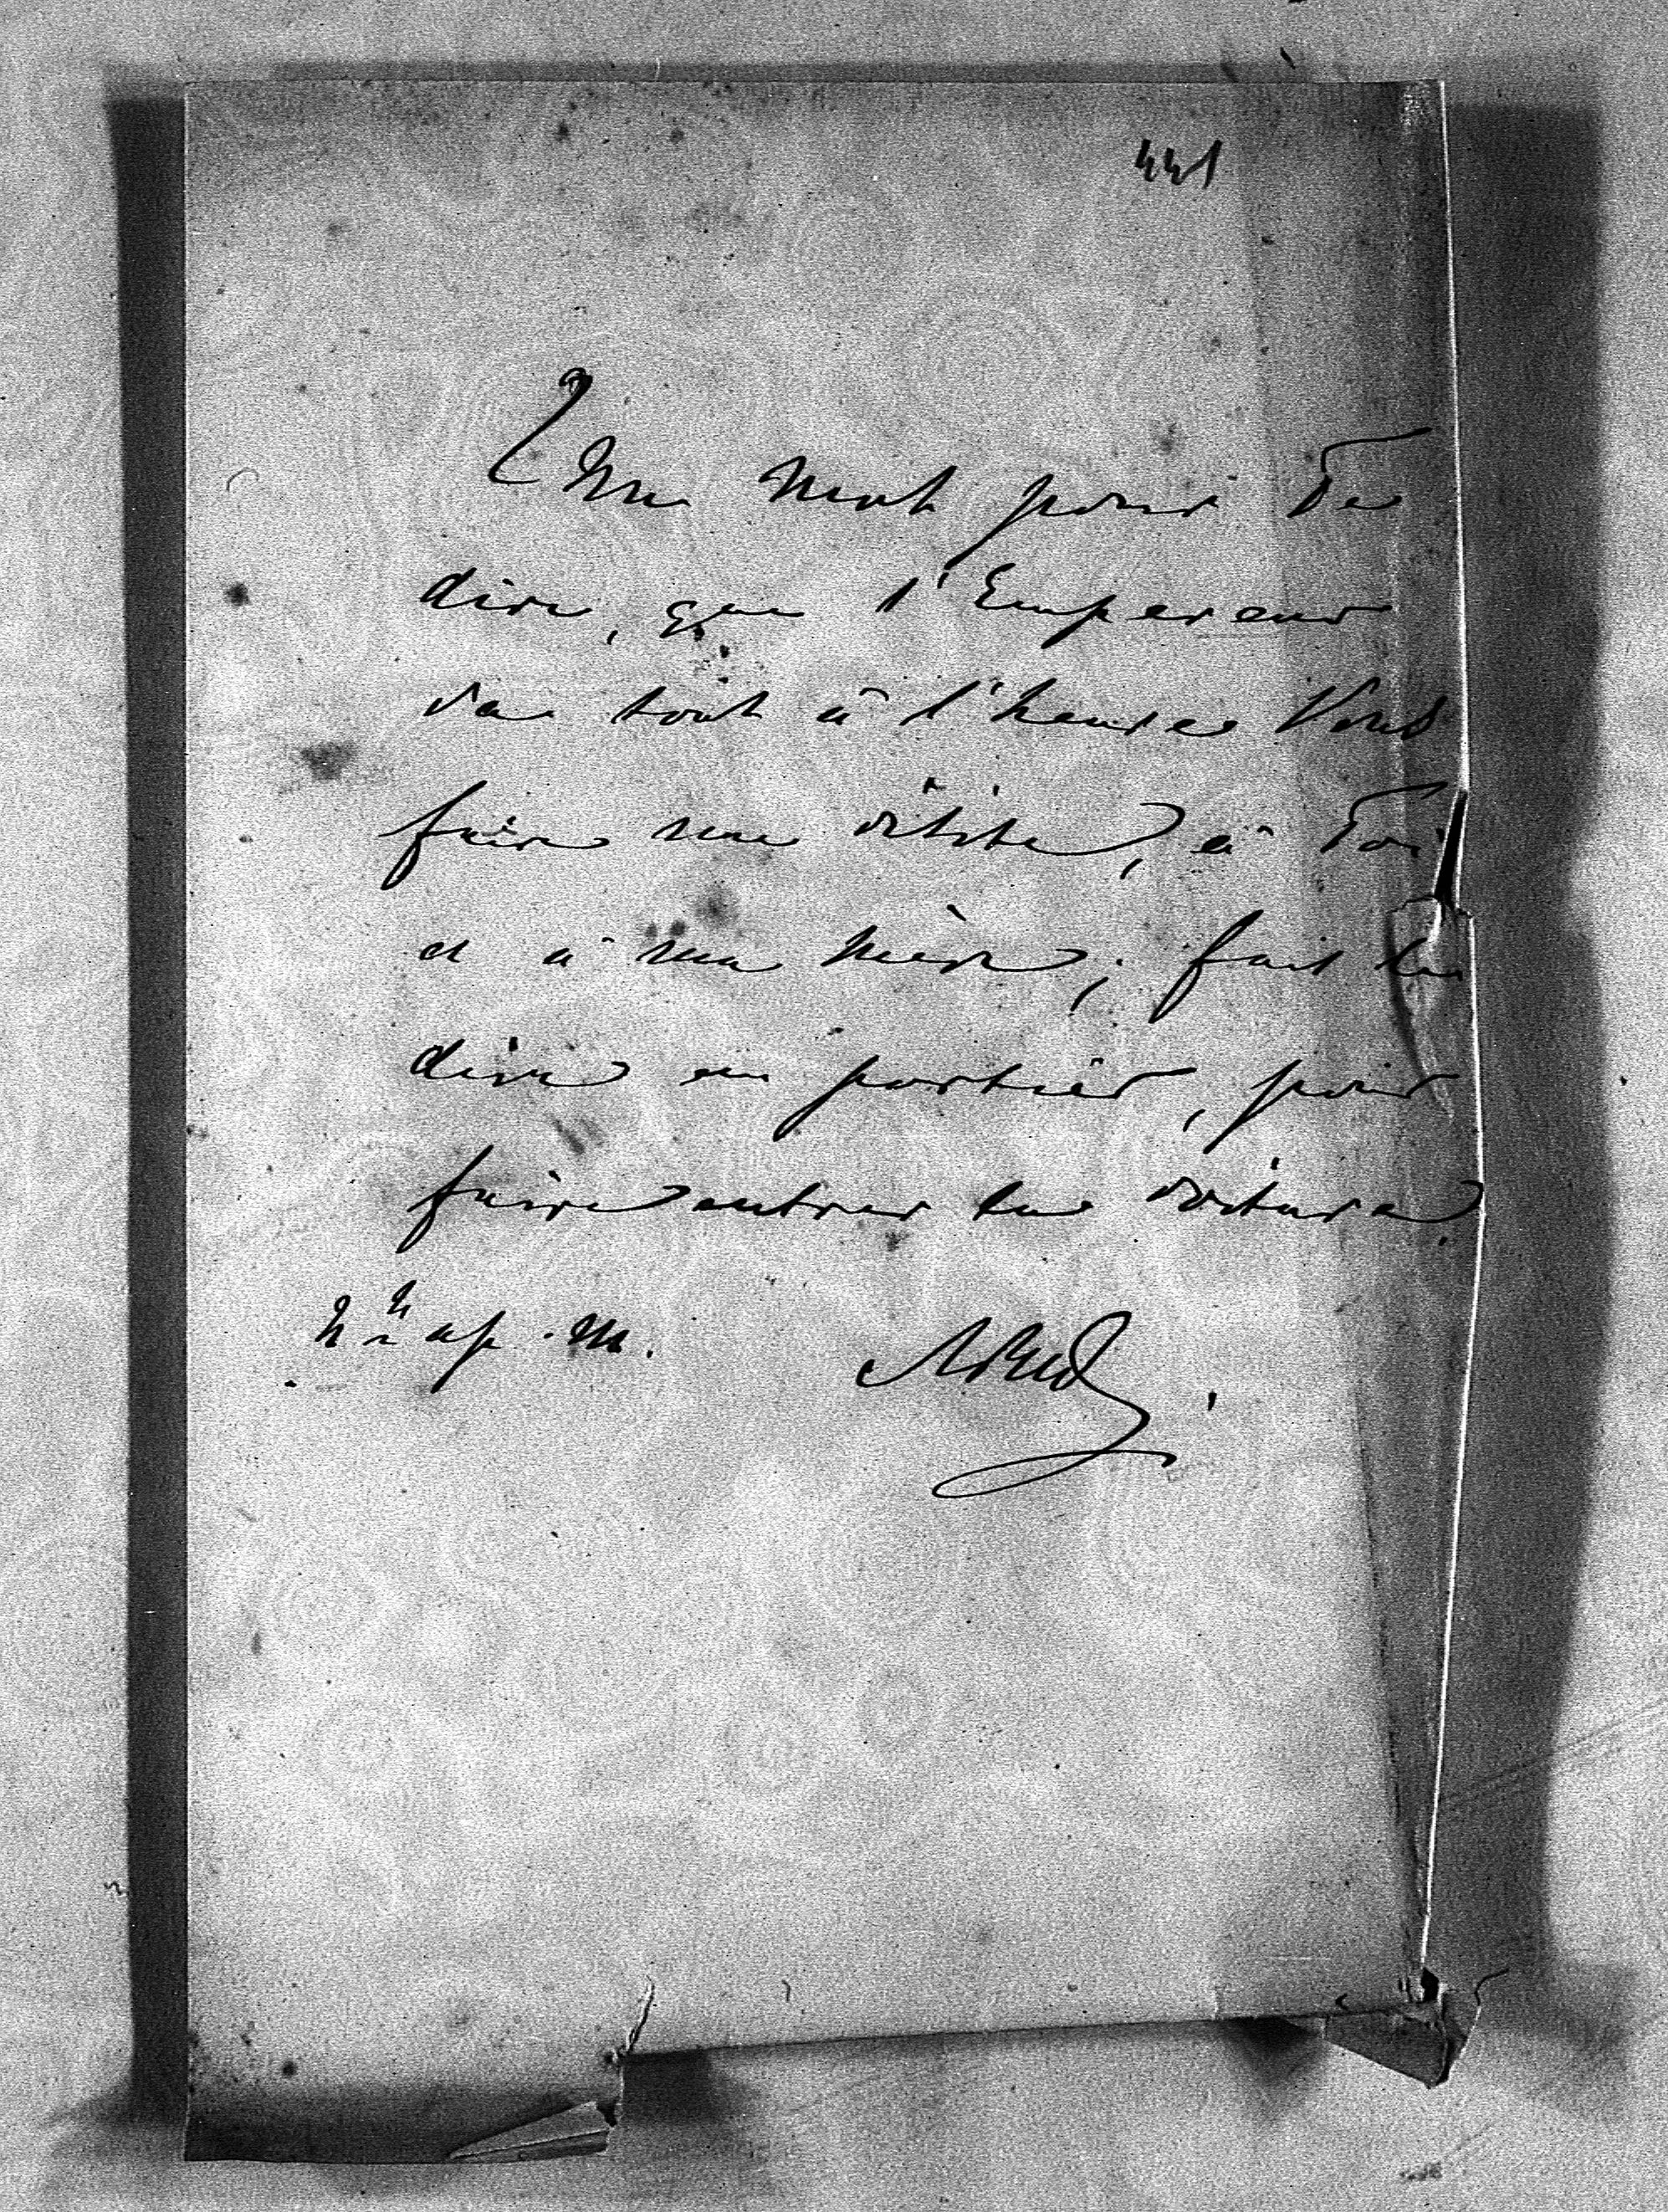 441
Un mot pour Te
dire, que l'Empereur
va tout à l'heure Vous
faire une visite, à Toi
et à ma mère; fait le
dire au portier, pour
faire entrer la voiture.
2 h ap. m.